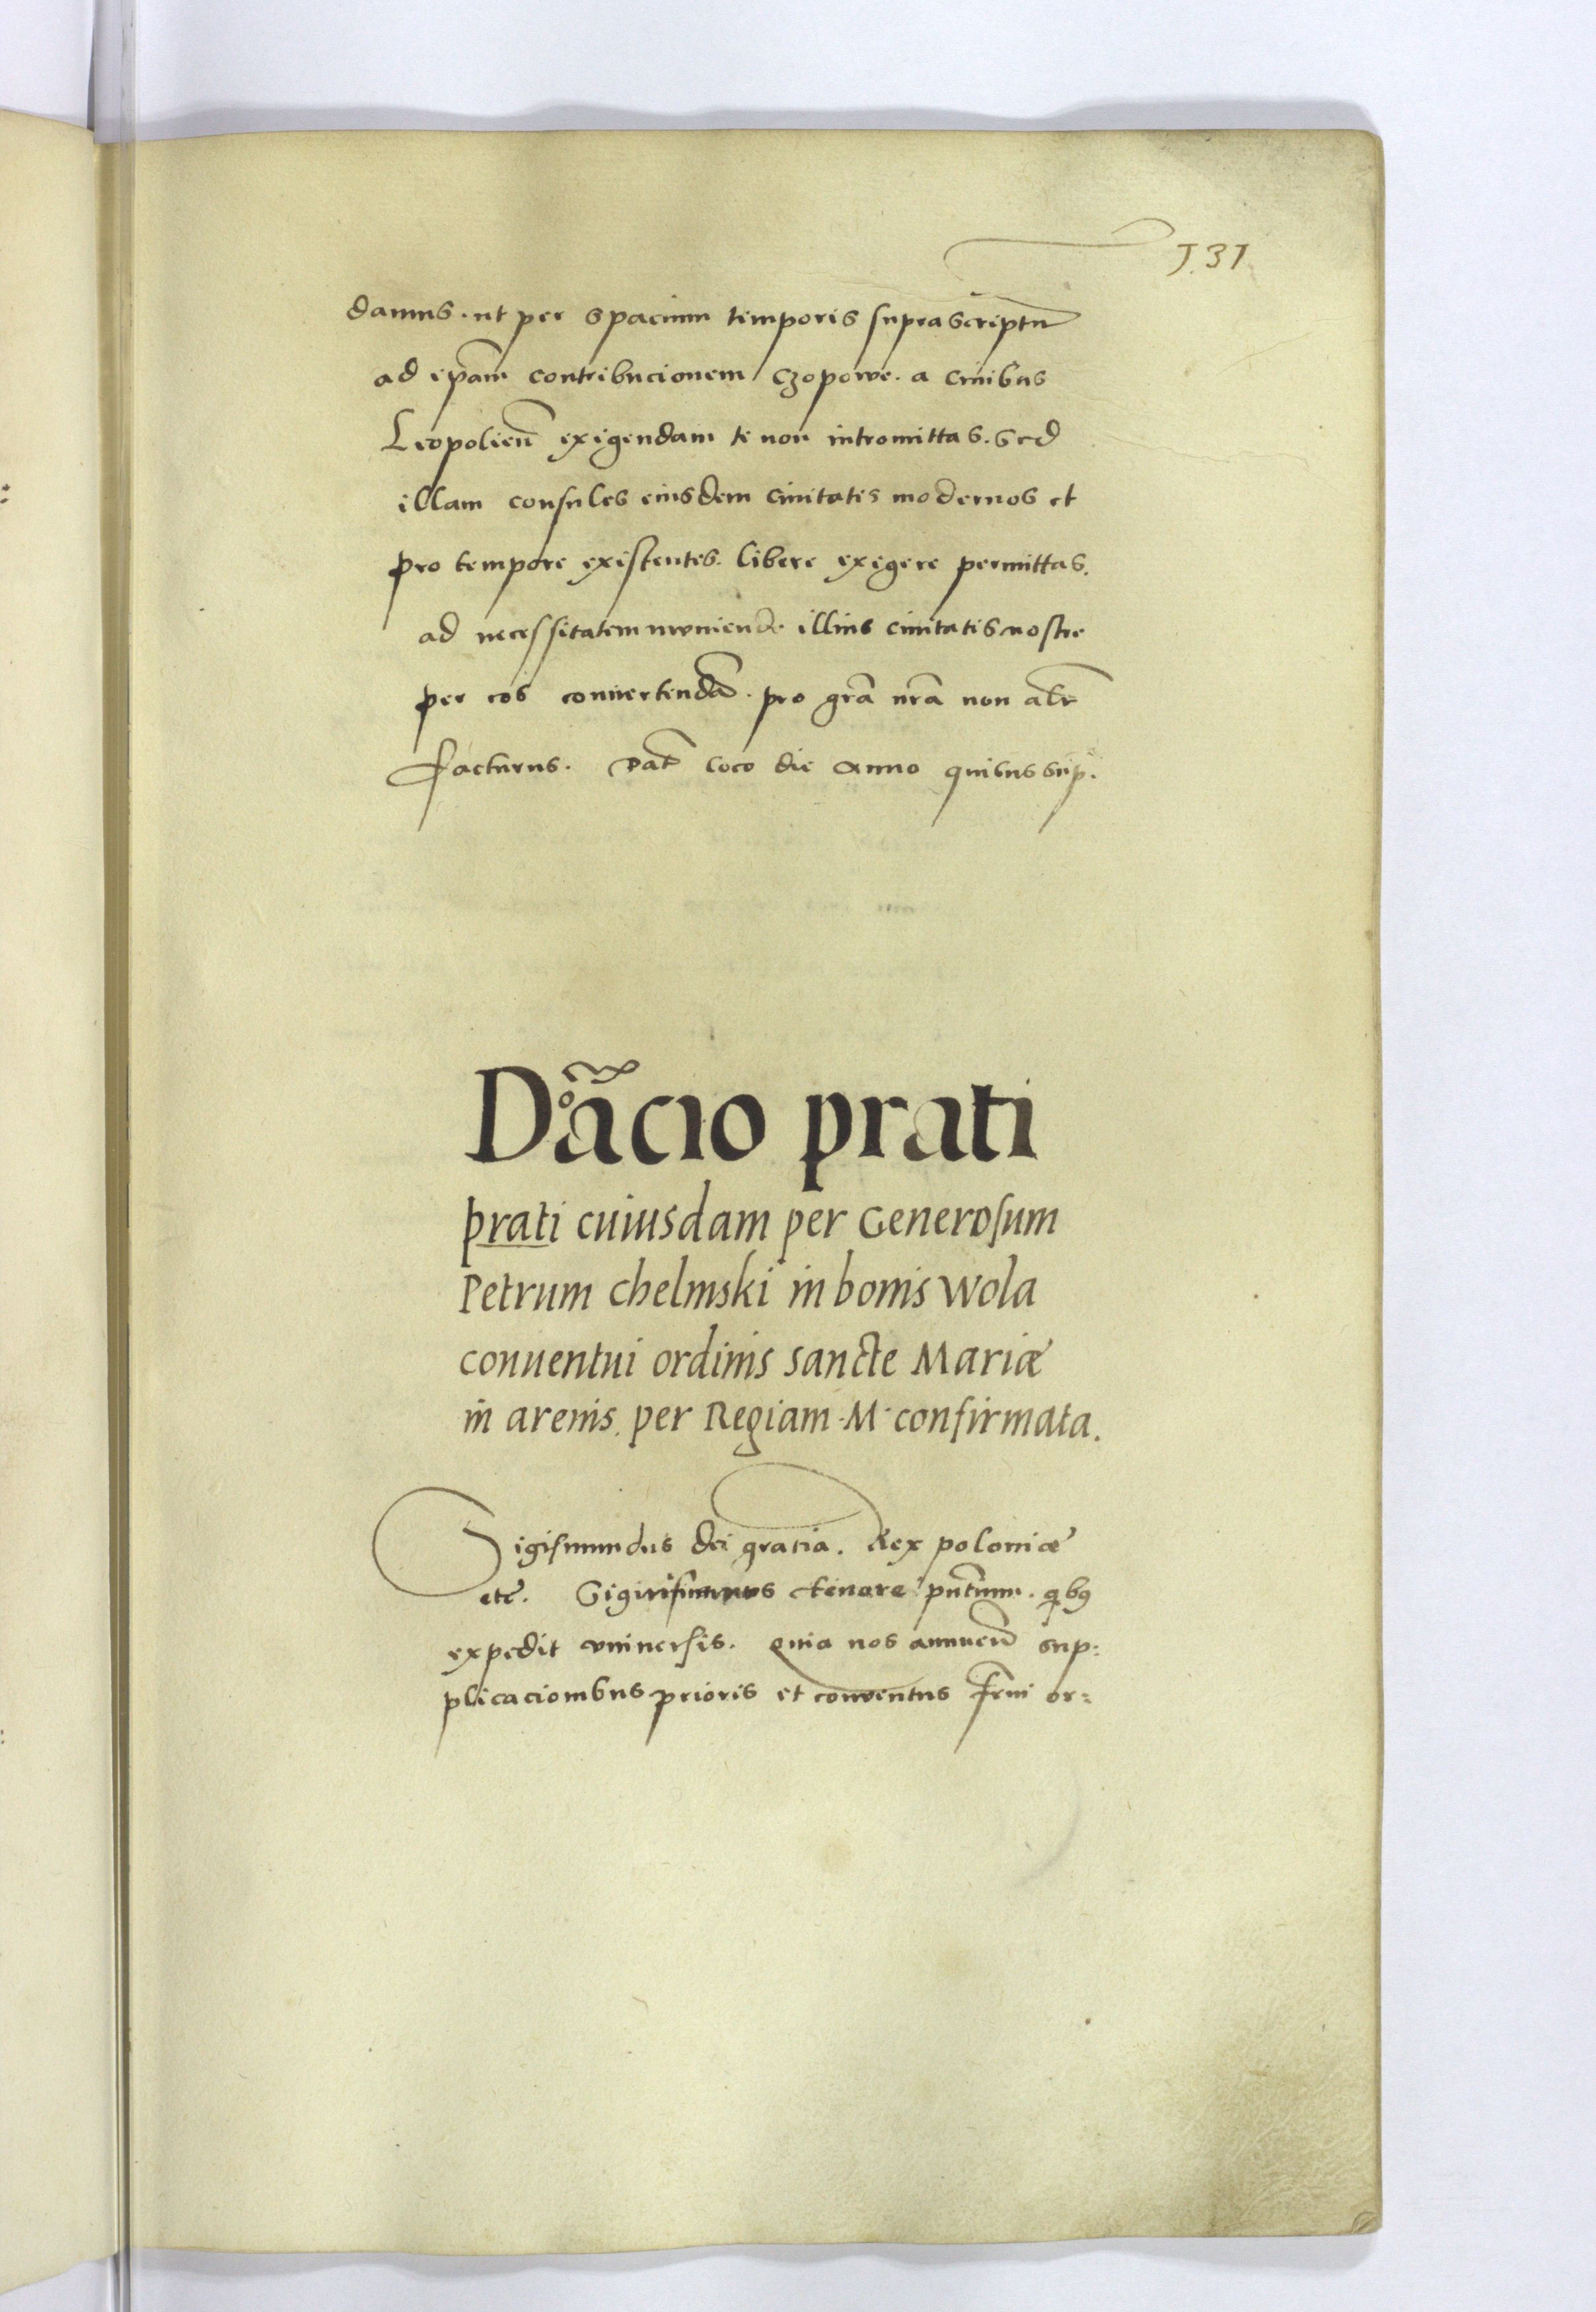 131
damus. ut per spacium temporis suprascriptũ
ad ip̃am contribucionem czopowe. a ciuibus
Leopolieñ exigendam te non intromittas. sed
illam consules eiusdem ciuitatis modernos et
pro tempore existentes. libere exigere permittas.
ad necessitatem muniende illius ciuitatis nostre
per eos conuertendã. pro grã nrã non alr̃
facturus. Dat̃ loco die anno quibus sup̃.
Dõacio prati
prati cuiusdam per Generosum
Petrum chelmski in bonis wola
conuentui ordinis sancte Mariæ
in arenis. per Regiam M. confirmata.
Sigismundus dei gratia. Rex poloniæ
etc̃. Significamus tenore pñtium. quibꝰ
expedit vniuersis. quia nos annueñ sup:
plicacionibus prioris et conuentus frm̃ or: